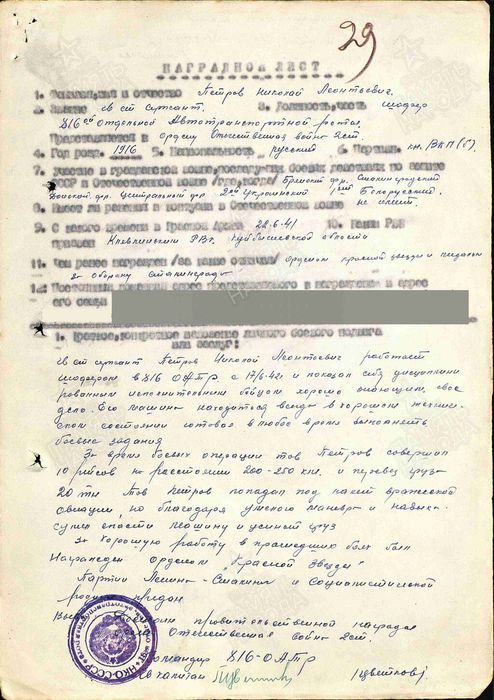 29
НАГРАДНОЙ ЛИСТ
1. Фамилия, имя и отчество Петров Николай Леонтьевич.
2. Звание гв ст сержант. 3. Должность, часть шофер
816ой отдельной Автотранспортной роты.
Представляется к ордену Отечественная война 2ст.
4. Год рожд. 1916 5. Национальность русский 6. Партийн. кн. ВКП(б)
7. Участие в гражданской войне, последующих боевых действиях по защите
СССР и Отечественной войне /где, когда/ Брянский фр. Сталинградский
Донской фр. Центральный фр. 2ой Украинский 1ый Белорусский.
8. Имеет ли ранения и контузии в Отечественной войне не имеет.
9. С какого времени в Красной Армии 22.6.41 10. Каким РВК
призван РВК Куйбышевской области
11. Чем ранее награжден /за какие отличия/ орденом красной звезды и медалью
За оборону Сталинграда
12. Постоянный домашний адрес представляемого к награждению и адрес
его семьи
1. Краткое, конкретное изложение личного боевого подвига
или заслуг:
гв ст сержант Петров Николай Леонтьевич работает
шофером в 816 ОАТР с 17/6-42г и показал себя дисциплини
рованным исполнительным бойцом хорошо знающим свое
дело. Его машина находится всегда в хорошем техниче-
ском состоянии готовая в любое время выполнять
боевые задания
За время боевых операции тов Петров совершил
10 рейсов на расстоянии 200-250 клм. и перевез груз
20 тн Тов Петров попадал под налет вражеской
авиации, но благодаря умелого маневра и
сумел спасти машину и ценный груз
За хорошую работу в прошедших боях был
Награжден Орденом "Красной Звезды"
Партии Ленина-Сталина и Социалистической
родине предан
правительственной награды
Отечественная война 2ст.
Командир 816-ОАТР
гв капитан /Цветков/
НКО-СССР